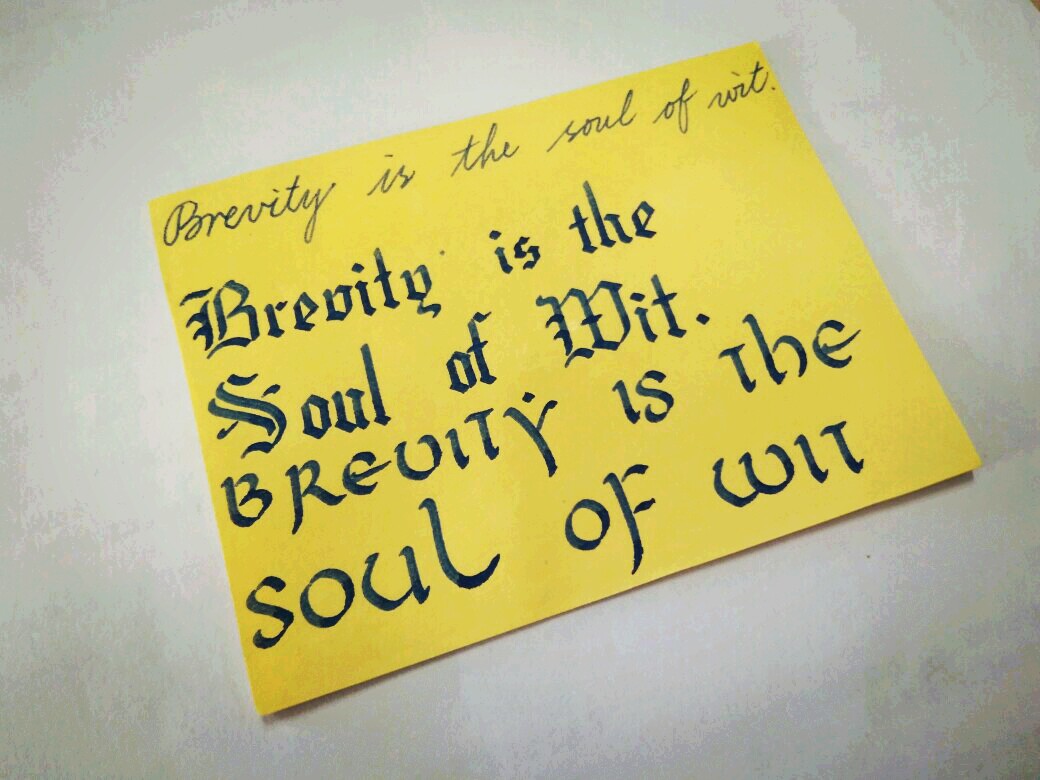 Brevity is the soul of wit.
Brevity is the
Soul of Wit.
BREVITY IS The
SOUL OF WIT